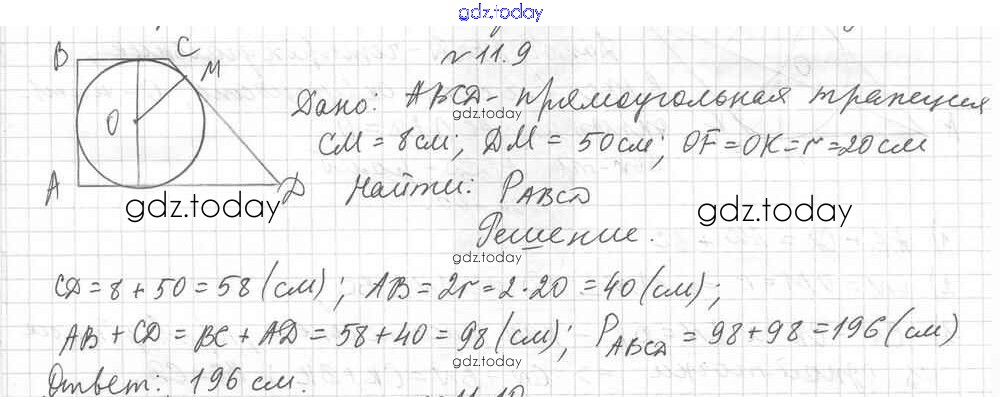 gdz.today
№11.9
B C M
Дано: ABCD - прямоугольная трапеция
gdz.today
O
CM = 8 см; DM = 50 см; OF = OK = r = 20 см
A D Найти: P_ABCD
gdz.today gdz.today
Решение.
gdz.today
CD = 8 + 50 = 58 (см); AB = 2r = 2 · 20 = 40 (см);
AB + CD = BC + AD = 58 + 40 = 98 (см); P_ABCD = 98 + 98 = 196 (см)
gdz.today
Ответ: 196 см.